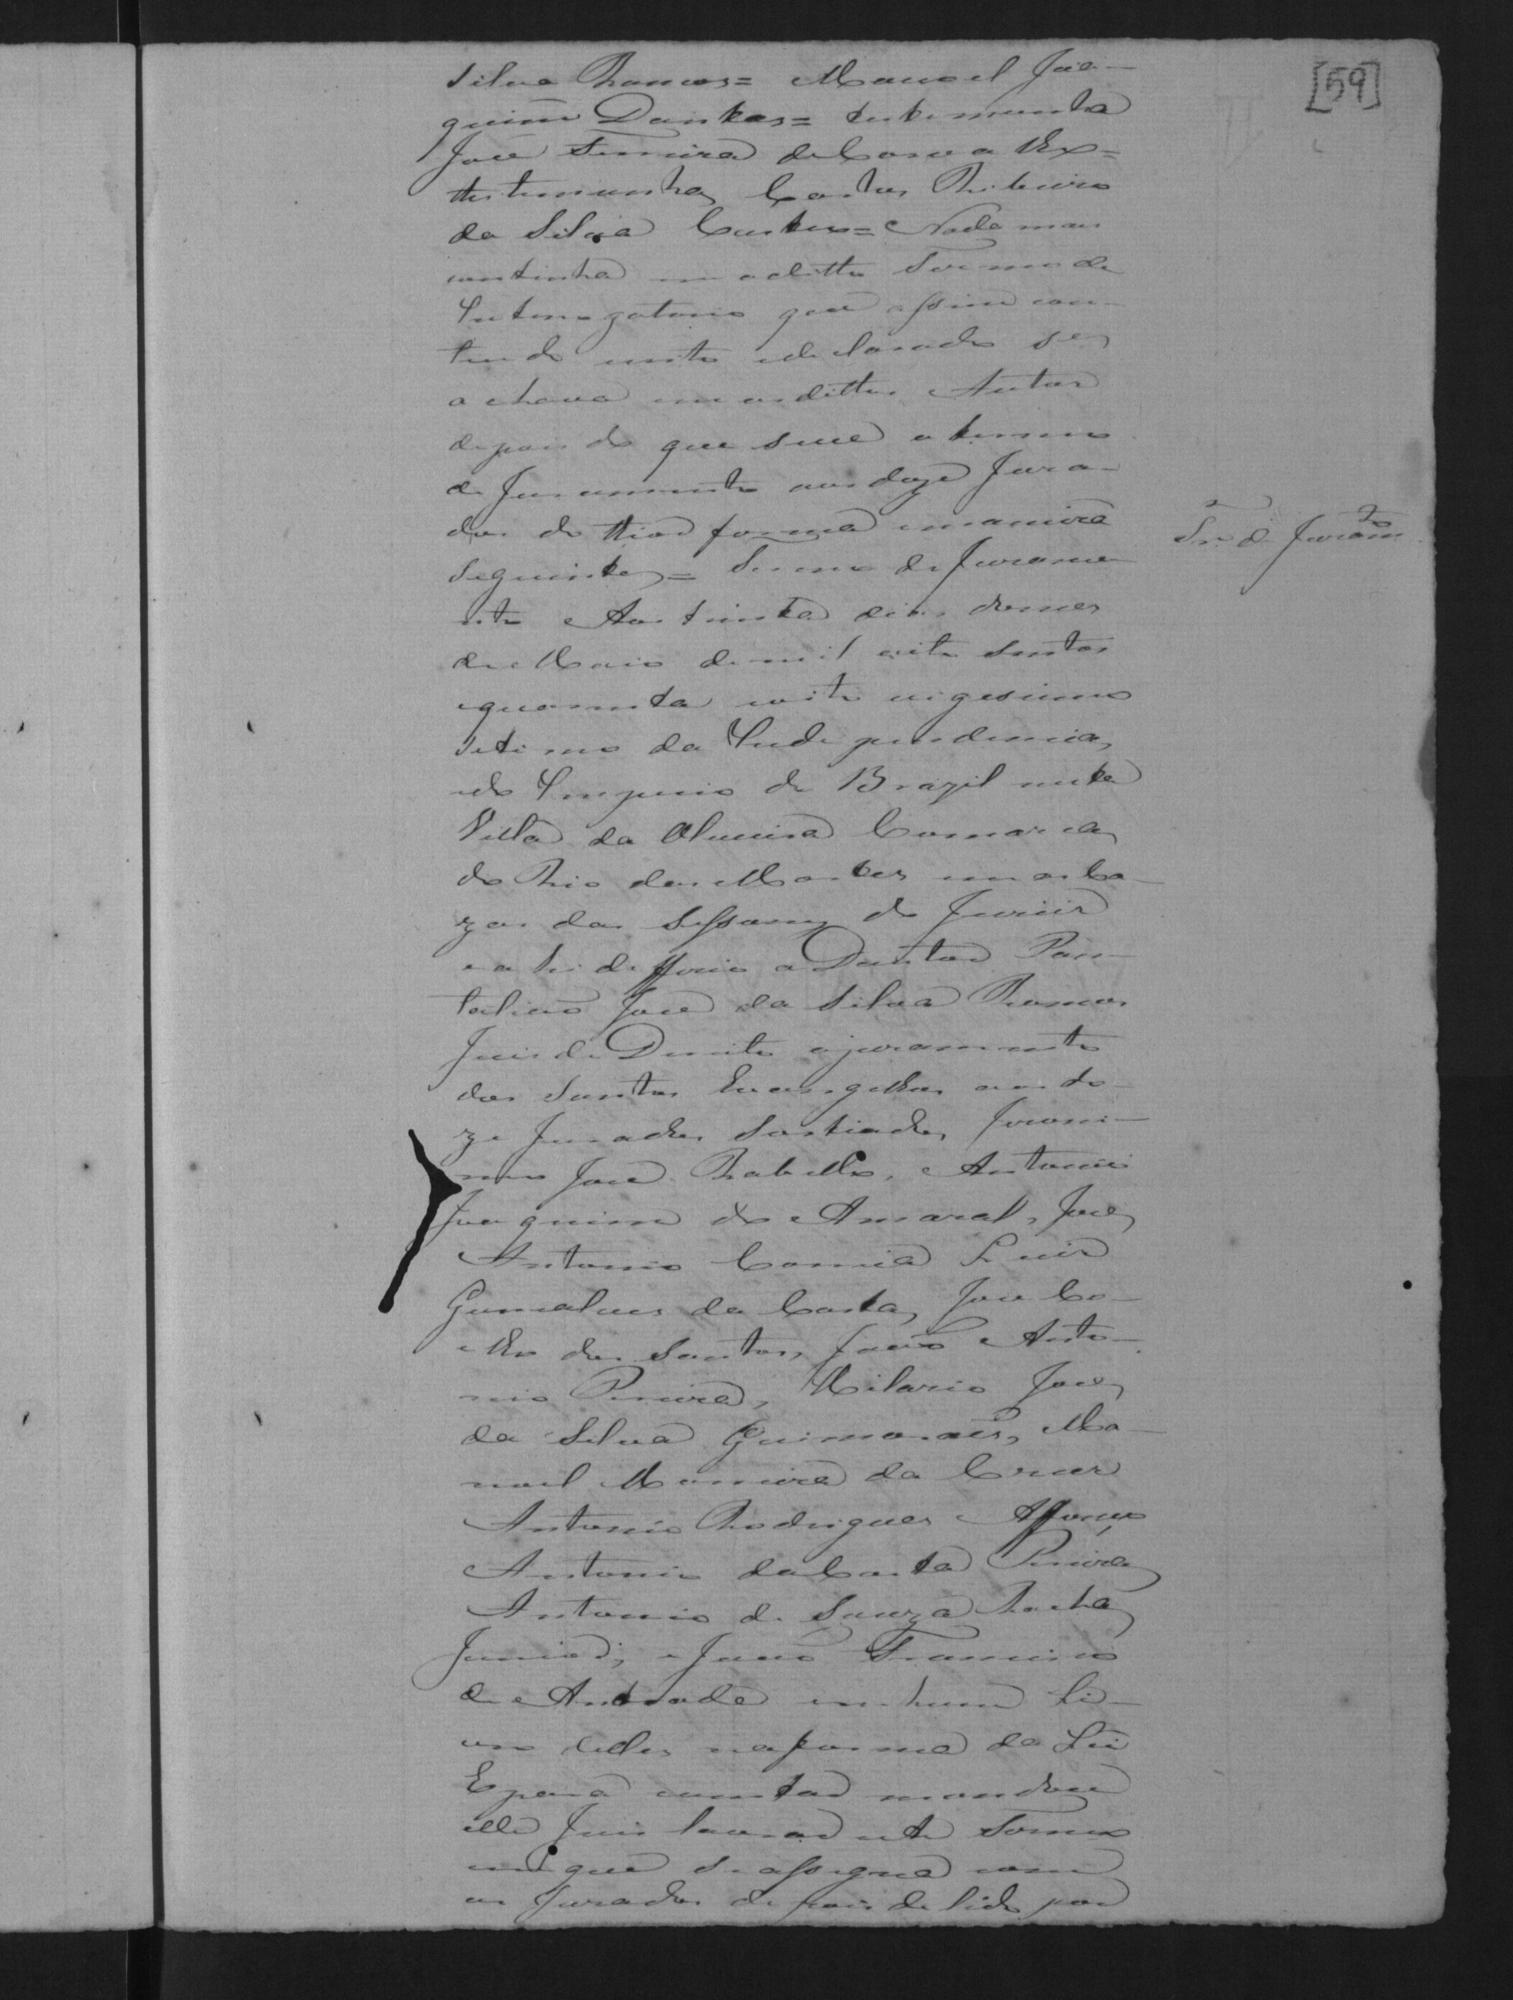 [59]
Silva Ramos = Manoel Joa-
quim Dantas = testemunha
José Ferreira de
testemunha, Carlos Ribeiro
da Silva = Nada mais
continha em o ditto Termo de
Interrogatorio que assim con-
tendo escrito e declarado se
achava em os dittos Autos
depois do que se ve o termo
de Juramento aos doze Jura-
dos do theor forma e maneira
Seguinte = Termo de Jurame-
nto Aos trinta dias do mes
de Maio de mil oito sentos
e quarenta e oito vigesimo
Setimo da Independencia,
e do Imperio do Brazil nesta
Villa da Oliveira Comarca
do Rio das Mortes em as Ca-
zas das Sessoens do Juris
e ahi deferio o Doutor Pan-
taliaõ José da Silva Ramos
Juis de Direito o juramento
dos Santos Evangelhos aos do-
ze Jurados Sortiados, Jeroni-
mo José Rabello, Antonio
Joaquim do Amaral, José
Antonio Correia Luis
Gonsalves da Costa, José Co-
elho dos Santos, Joaõ Anto-
nio Pereira, Hilario José
da Silva Guimarães, Ma-
noel Moreira da Cruz
Antonio Rodrigues Affonso
Antonio da Costa Pereira
Antonio de Souza Rocha
Junior, e Joaõ Francisco
de Andrade em hum Li-
vro delles na forma da Lei
E para constar mandou
elle Juis lavrar este Termo
em que se assigna com
os Jurados depois de lido por
Tr.º de Juram.to